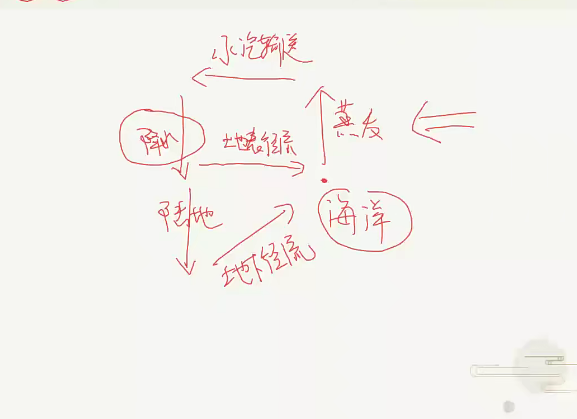 水汽输送
降水
地表径流
蒸发
陆地
海洋
地下径流